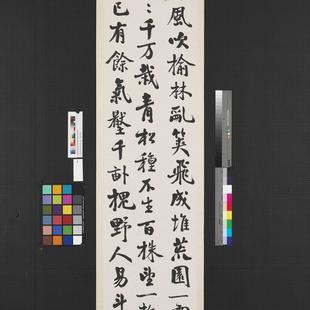 風吹榆林亂莢飛成堆荒園一雨
千万栽青松種不生百株望一枚
已有餘氣壓千畝槐野人易斗